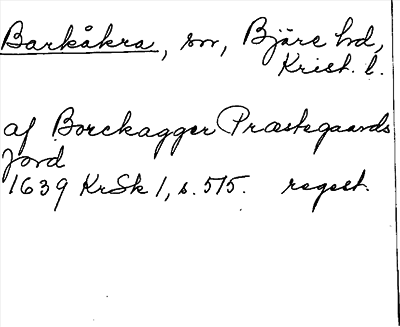 Barkåkra, sn, Bjäre hd,
Krist. l.
af Borckagger Præstegaards
Jord
1639 KrSk 1, s. 515. regest.